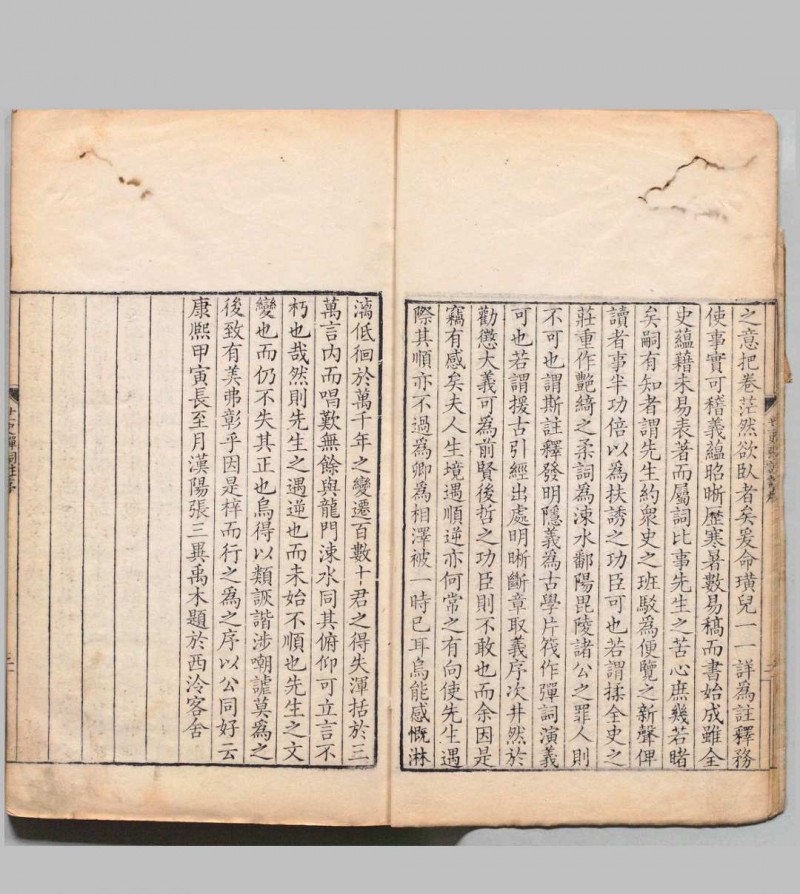 之意把卷茫然欲臥者矣爰命璜兒一一詳為註釋務
使事實可稽義蘊昭晰歷寒暑數易稿而書始成雖全
史蘊藉未易表著而屬詞比事先生之苦心庶幾若睹
矣嗣有知者謂先生約衆史之班駁為便覽之新聲俾
讀者事半功倍以為扶誘之功臣可也若謂揉全史之
莊重作艷綺之柔詞為涑水鄱陽毘陵諸公之罪人則
不可也謂斯註釋發明隱義為古學片筏作彈詞演義
可也若謂援古引經出處明晰斷章取義序次井然於
勸懲大義可為前賢後哲之功臣則不敢也而余因是
竊有感矣夫人生境遇順逆亦何常之有向使先生遇
際其順亦不過為卿為相澤被一時已耳烏能感慨淋
漓低徊於萬千年之變遷百數十君之得失渾括於三
萬言內而唱歎無餘與龍門涑水同其俯仰可立言不
朽也哉然則先生之遇逆也而未始不順也先生之文
變也而仍不失其正也烏得以類詼諧涉嘲謔莫為之
後致有美弗彰乎因是梓而行之為之序以公同好云
康熙甲寅長至月漢陽張三異禹木題於西泠客舍
廿一史彈詞註序
二